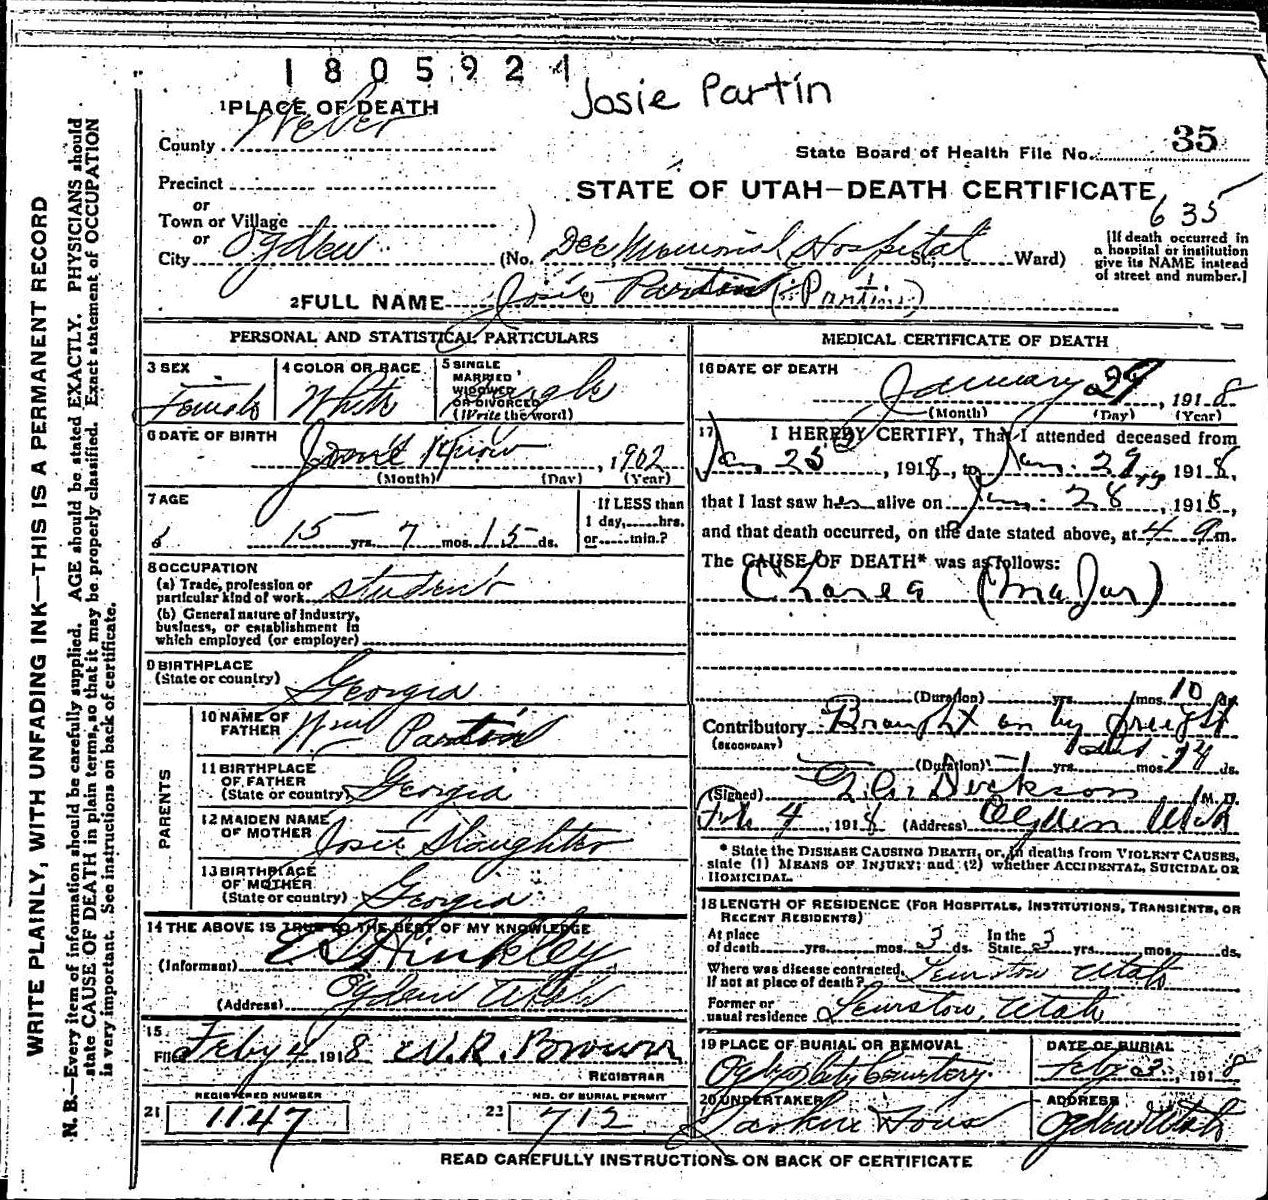 1805921
Josie Partin
1 PLACE OF DEATH
County Weber
State Board of Health File No. 35
Precinct
or
STATE OF UTAH—DEATH CERTIFICATE
635
Town or Village
or
City Ogden (No. Dee Memorial Hospital St; Ward)
[If death occurred in a hospital or institution give its NAME instead of street and number.]
2 FULL NAME Josie Partin (Partin)
PERSONAL AND STATISTICAL PARTICULARS
3 SEX Female
4 COLOR OR RACE White
5 SINGLE MARRIED WIDOWED OR DIVORCED (Write the word) Single
6 DATE OF BIRTH Don't Know, 1902
(Month) (Day) (Year)
7 AGE 15 yrs. 7 mos. 15 ds.
If LESS than 1 day, hrs. or min.?
8 OCCUPATION
(a) Trade, profession or particular kind of work student
(b) General nature of industry, business, or establishment in which employed (or employer)
9 BIRTHPLACE (State or country) Georgia
PARENTS
10 NAME OF FATHER Wm Partin
11 BIRTHPLACE OF FATHER (State or country) Georgia
12 MAIDEN NAME OF MOTHER Josie Slaughter
13 BIRTHPLACE OF MOTHER (State or country) Georgia
14 THE ABOVE IS TRUE TO THE BEST OF MY KNOWLEDGE
(Informant) E S Hinkley
(Address) Ogden Utah
15
Filed Feby 4 1918 W.R. Brown
REGISTRAR
REGISTERED NUMBER
21 1147
NO. OF BURIAL PERMIT
22 712
MEDICAL CERTIFICATE OF DEATH
16 DATE OF DEATH January 29, 1918
(Month) (Day) (Year)
17 I HEREBY CERTIFY, That I attended deceased from
Jan. 25, 1918, to Jan. 29, 1918,
that I last saw her alive on Jan. 28, 1918,
and that death occurred, on the date stated above, at 4 a m.
The CAUSE OF DEATH* was as follows:
Chorea (Major)
(Duration) yrs. mos. 10 ds.
Contributory Brought on by fright
(SECONDARY)
(Duration) yrs. mos. 14 ds.
(Signed) Dickson M. D.
Feb 4, 1918 (Address) Ogden Utah
* State the DISEASE CAUSING DEATH, or, in deaths from VIOLENT CAUSES, state (1) MEANS OF INJURY; and (2) whether ACCIDENTAL, SUICIDAL OR HOMICIDAL.
18 LENGTH OF RESIDENCE (FOR HOSPITALS, INSTITUTIONS, TRANSIENTS, OR RECENT RESIDENTS)
At place of death yrs. mos. 3 ds. In the State 3 yrs. mos. ds.
Where was disease contracted, If not at place of death? Lewiston Utah
Former or usual residence Lewiston, Utah
19 PLACE OF BURIAL OR REMOVAL Ogden City Cemetery.
DATE OF BURIAL Feby 3, 1918
20 UNDERTAKER Larkin & Sons
ADDRESS Ogden Utah
READ CAREFULLY INSTRUCTIONS ON BACK OF CERTIFICATE
WRITE PLAINLY, WITH UNFADING INK—THIS IS A PERMANENT RECORD
N. B.—Every item of information should be carefully supplied. AGE should be stated EXACTLY. PHYSICIANS should
state CAUSE OF DEATH in plain terms, so that it may be properly classified. Exact statement of OCCUPATION
is very important. See instructions on back of certificate.